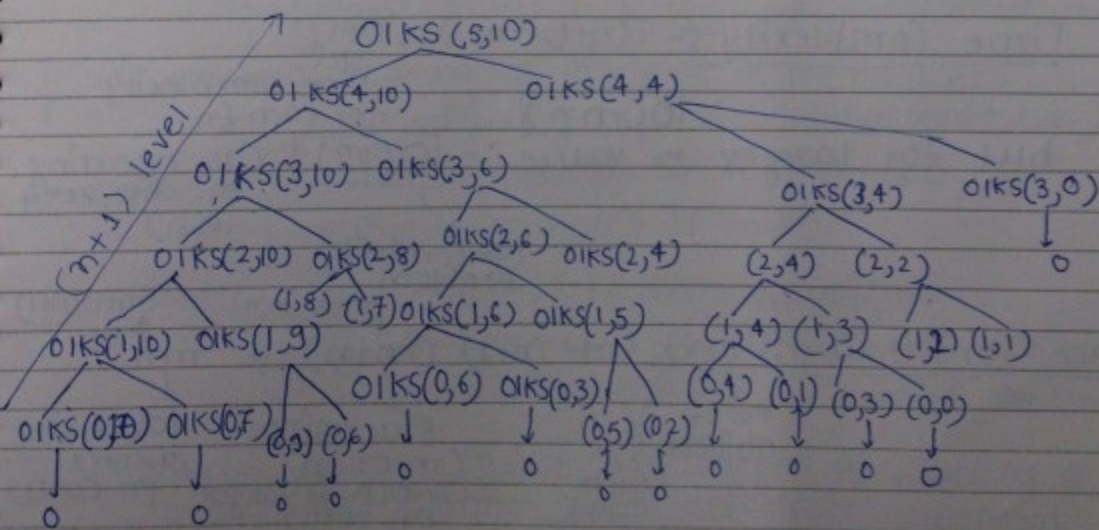 01KS(5,10)
01KS(4,10) 01KS(4,4)
(n+1) level
01KS(3,10) 01KS(3,6) 01KS(3,4) 01KS(3,0)
01KS(2,10) 01KS(2,8) 01KS(2,6) 01KS(2,4) (2,4) (2,2) 0
(1,8) (1,7) 01KS(1,6) 01KS(1,5) (1,4) (1,3) (1,2) (1,1)
01KS(1,10) 01KS(1,9)
01KS(0,6) 01KS(0,3) (0,4) (0,1) (0,3) (0,0)
01KS(0,10) 01KS(0,7) (0,9) (0,6) (0,5) (0,2)
0 0 0 0 0 0
0 0 0 0 0 0